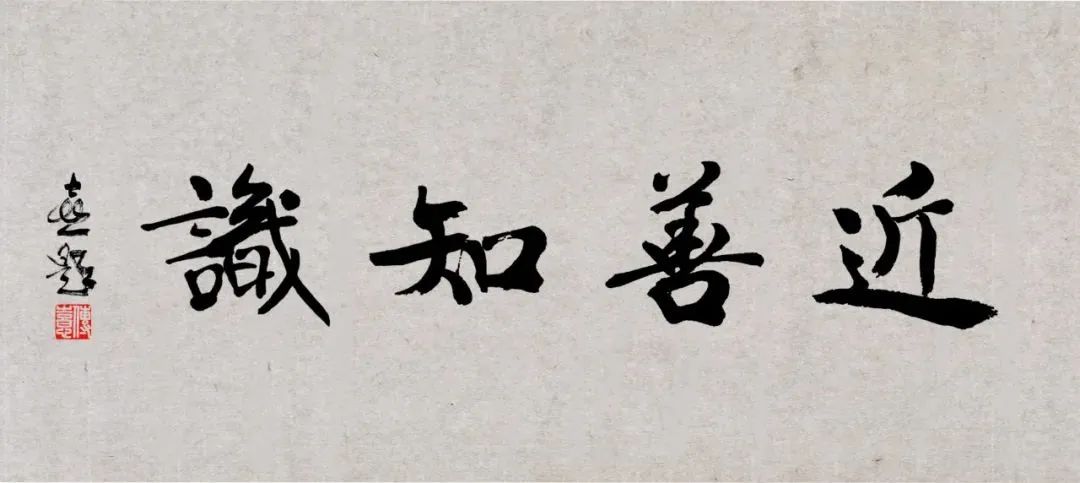 近善知識